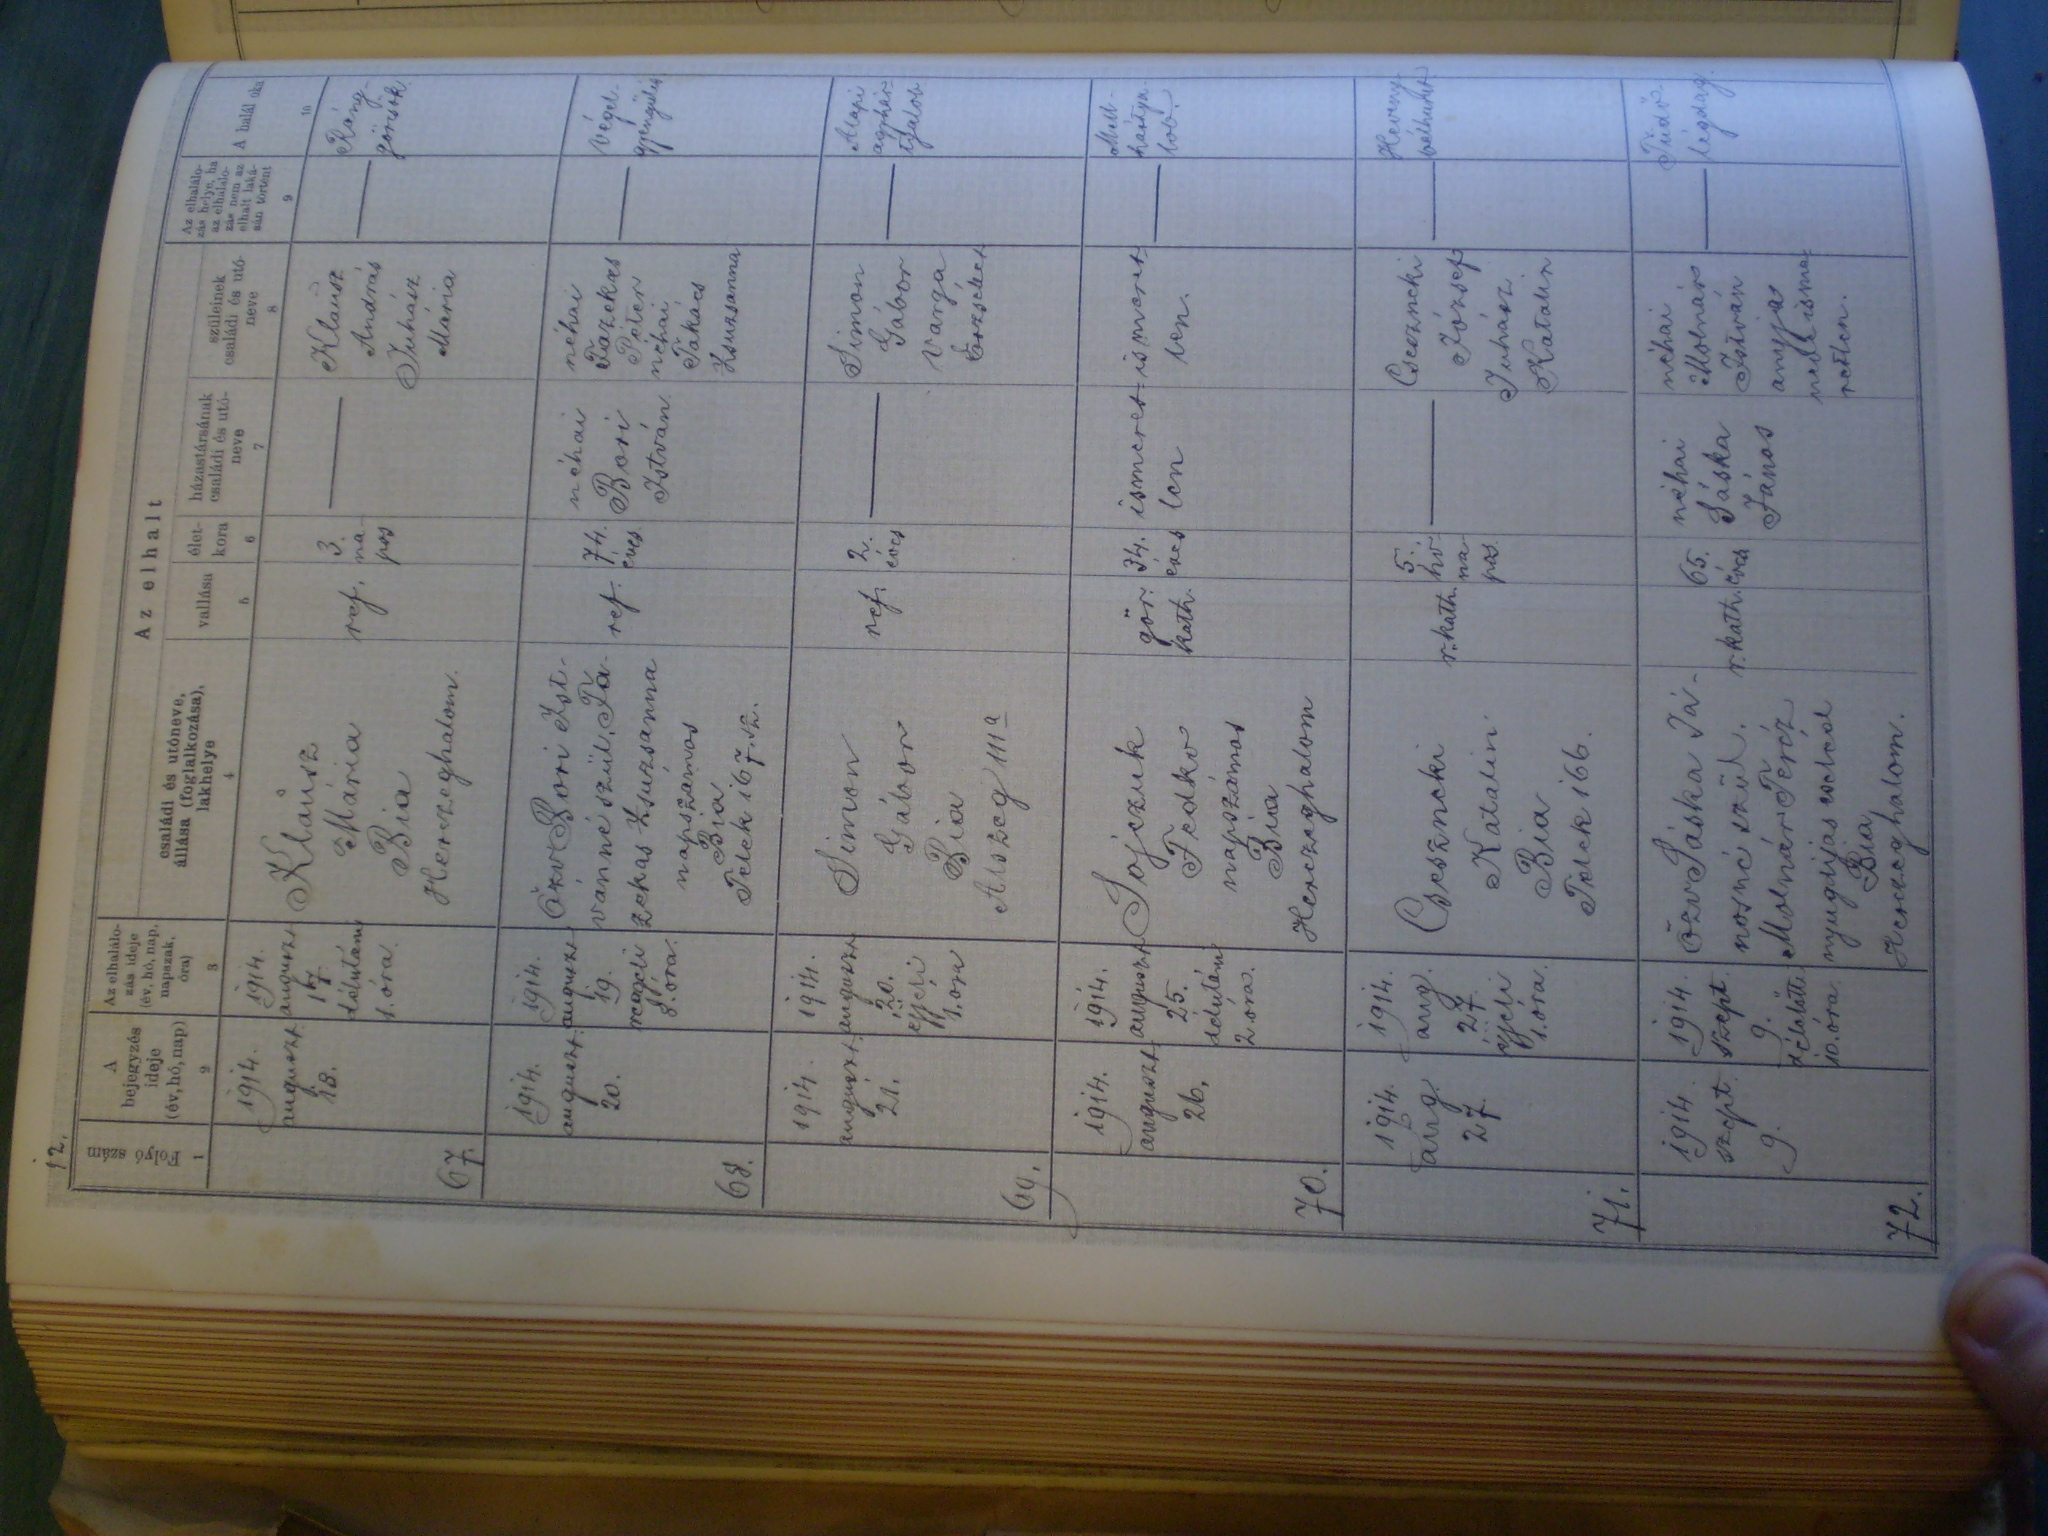 12.
Az elhalt
Folyó szám
A
bejegyzés
ideje
(év, hó, nap)
Az elhalálo-
zás ideje
(év, hó, nap,
napszak,
óra)
családi és utóneve,
állása (foglalkozása),
lakhelye
vallása
élet-
kora
házastársának
családi és utó-
neve
szüleinek
családi és utó-
neve
Az elhalálo-
zás helye, ha
az elhalálo-
zás nem az
elhalt laká-
sán történt
A halál oka
1
2
3
4
5
6
7
8
9
10
67.
1914.
auguszt.
18.
1914.
auguszt.
17.
délutáni
1. óra.
Klausz
Mária
Bia
Herczeghalom.
ref.
3.
na-
pos
Klausz
András
Juhász
Mária
Ráng-
görcsök.
68.
1914.
auguszt.
20.
1914.
auguszt.
19.
reggeli
8. óra.
Özv. Bori Ist-
vánné szül. Fa-
zekas Zsuzsanna
napszámos
Bia
Telek 167. sz.
ref.
74.
éves.
néhai
Bori
István.
néhai
Fazekas
Péter
néhai
Takács
Zsuzsanna
Végel-
gyengülés
69.
1914.
auguszt.
21.
1914.
auguszt.
20.
éjjeli
1. óra
Simon
Gábor
Bia
Alszeg 111a
ref.
2.
éves
Simon
Gábor
Varga
Erzsébet
Alapi
agyhár-
tyalob.
70.
1914.
auguszt.
26.
1914.
auguszt.
25.
délutáni
2. óra.
Fedko
napszámos
Bia
Herczeghalom
gör.
kath.
34.
éves
ismeret-
len
ismeret-
len.
Mell-
hártya-
lob.
71.
1914.
aug.
27.
1914.
aug.
27.
éjjeli
1. óra.
Cseszncki
Katalin.
Bia
Telek 166.
r. kath.
5.
hó-
na-
pos.
Cseszncki
József
Juhász
Katalin
Heveny
bélhurut.
72.
1914.
szept.
9.
1914.
szept.
9.
délelőtti
10. óra.
Özv. Sáska Já-
nosné szül.
Molnár Teréz
nyugdíjas cseléd
Bia
Herczeghalom.
r. kath.
65.
éves
néhai
Sáska
János
néhai
Molnár
István
anyja
neve isme-
retlen.
Tüdő-
légdag.